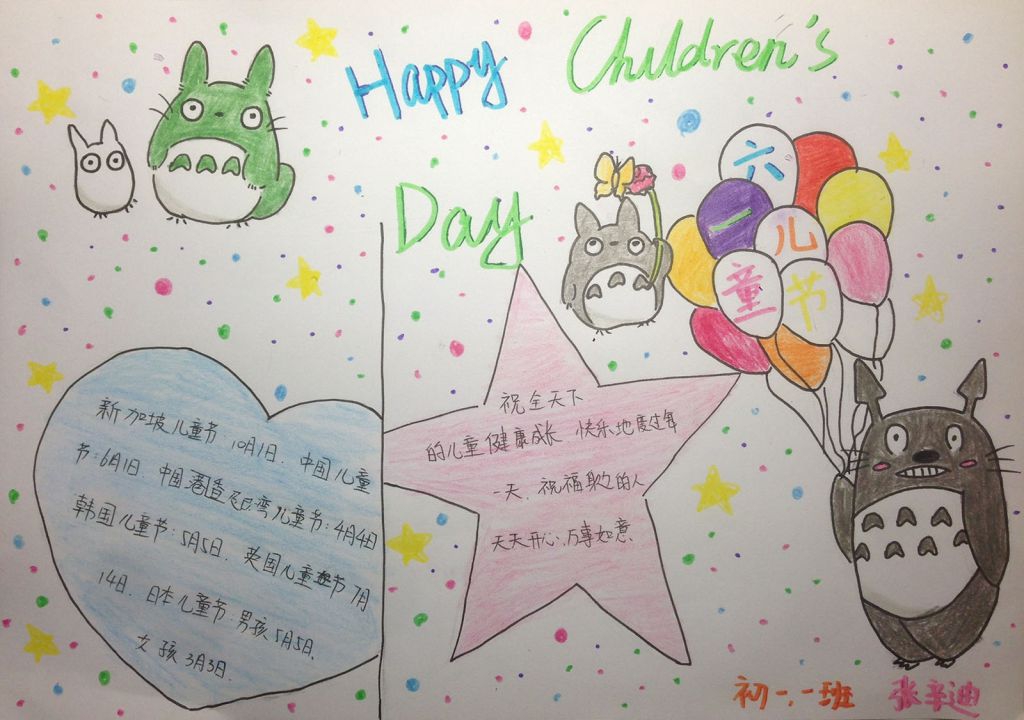 Happy Children's
Day
六
一儿
童节
新加坡儿童节 10月1日. 中国儿童
节:6月1日 中国港 湾儿童节:4月4日
韩国儿童节:5月5日. 英国儿童节7月
14日. 日本儿童节:男孩5月5日.
女孩3月3日.
祝全天下
的儿童健康成长 快乐地度过年
一天. 祝福 的人
天天开心.万事如意.
初一.一班 张 迪